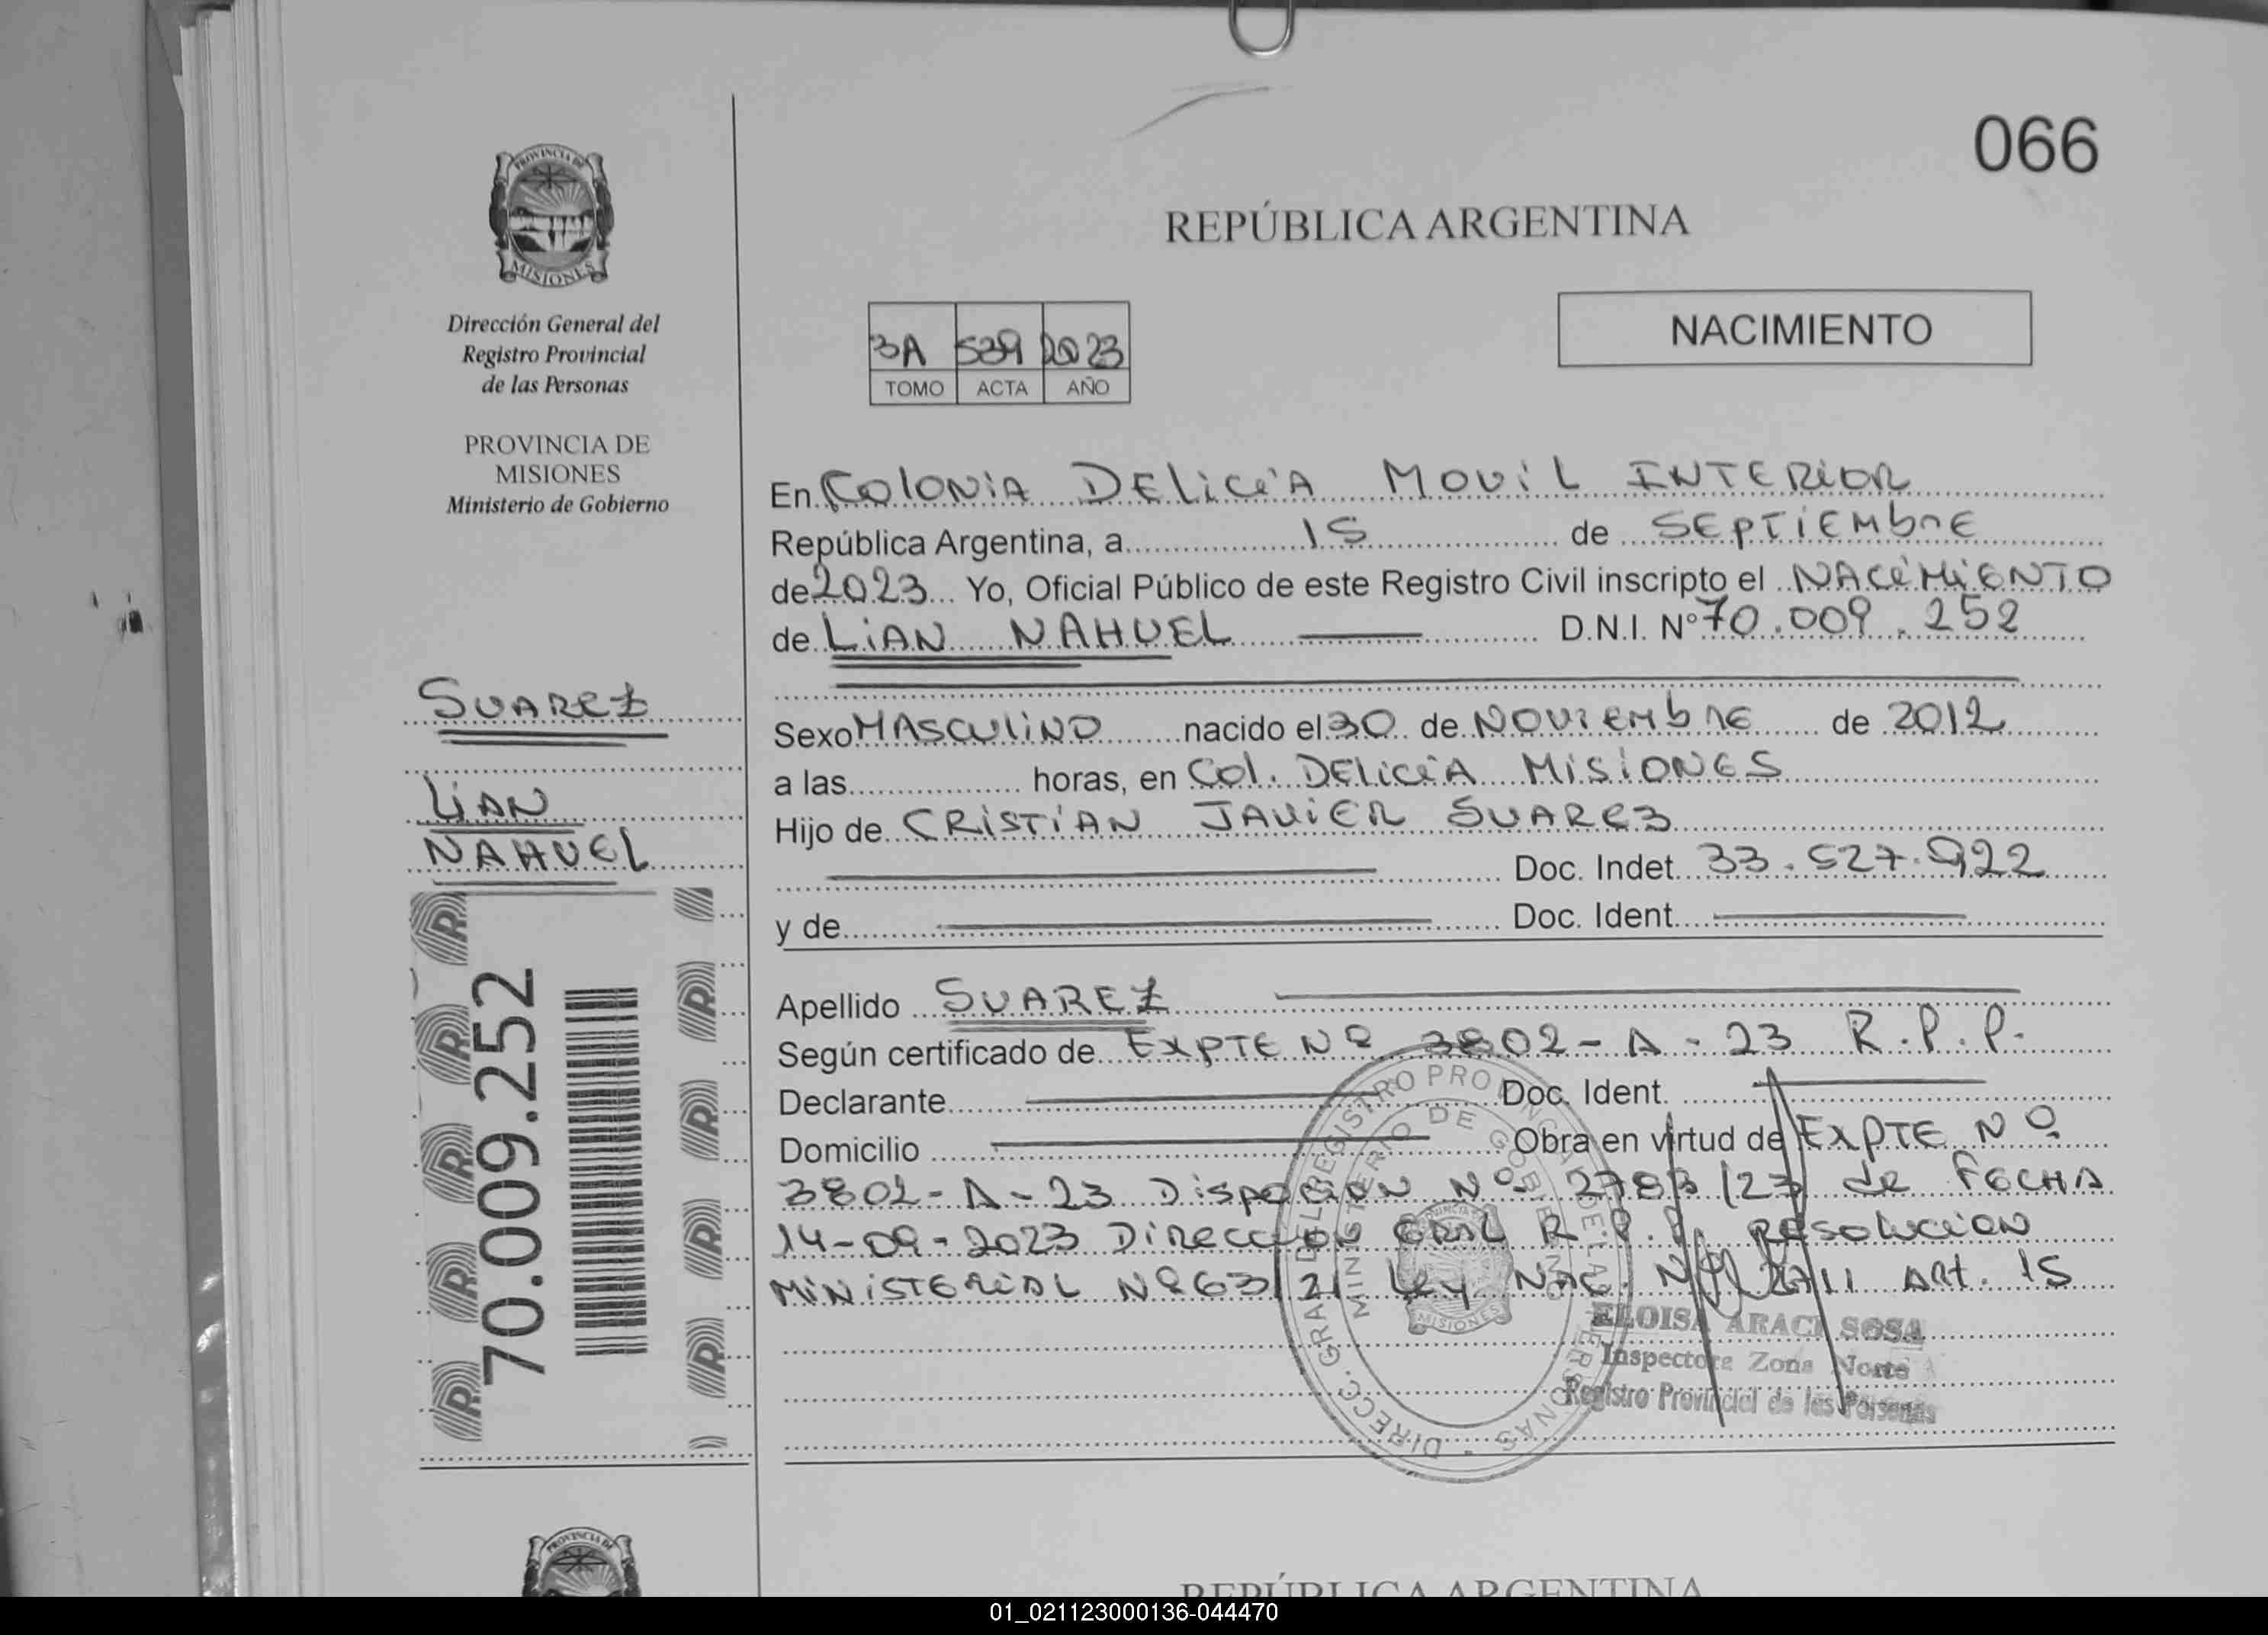 066
REPÚBLICA ARGENTINA
NACIMIENTO
PROVINCIA DE
MISIONES
Dirección General del
Registro Provincial
de las Personas
PROVINCIA DE
MISIONES
Ministerio de Gobierno
3A 539 2023
TOMO ACTA AÑO
En COLONIA DELICIA MOVIL INTERIOR
República Argentina, a 15 de SEPTIEMBRE
de 2023 Yo, Oficial Público de este Registro Civil inscripto el NACIMIENTO
de LIAN NAHUEL D.N.I. N° 70.009.252
Sexo MASCULINO nacido el 30 de NOVIEMBRE de 2012
a las horas, en Col. DELICIA MISIONES
Hijo de CRISTIAN JAVIER SUAREZ
Doc. Indet. 33.527.922
y de Doc. Ident.
Apellido SUAREZ
Según certificado de EXPTE Nº 3802-A-23 R.P.P.
Declarante Doc. Ident.
Domicilio Obra en virtud de EXPTE Nº
3802-A-23 DISPOCION Nº 2783/23 de FECHA
14-09-2023 DIRECCION GRAL R.P.P. RESOLUCION
MINISTERIAL Nº 63/21 Ley NAC. Art. 15
SUAREZ
LIAN
NAHUEL
70.009.252
DIRECC. GRAL DEL REGISTRO PROVINCIAL DE LAS PERSONAS
MINISTERIO DE GOBIERNO
MISIONES
ELOISA ARACI SOSA
Inspectora Zona Norte
Registro Provincial de las Personas
PROVINCIA DE
REPÚBLICA ARGENTINA
01_021123000136-044470